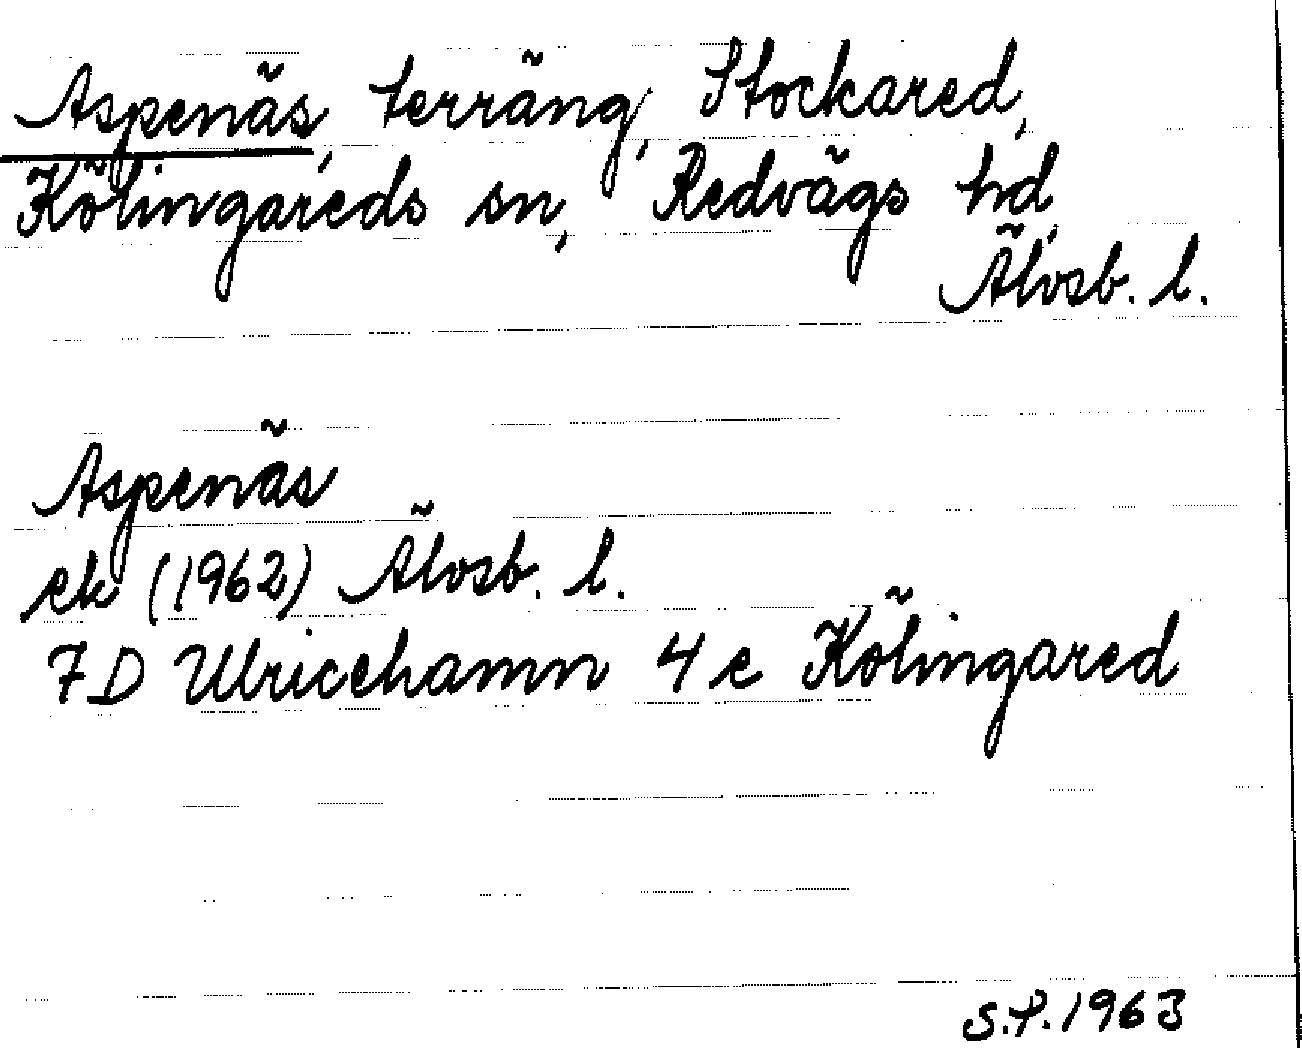 Aspenäs, terräng, Stockared,
Kölingareds sn, Redvägs hd,
Älvsb. l.
Aspenäs
ek (1962) Älvsb. l.
7D Ulricehamn 4 e Kölingared
S.P. 1963